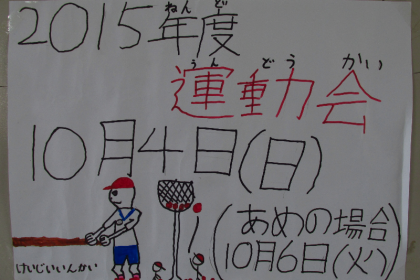 ねんど
2015年度
うんどうかい
運動会
10月4日(日)
(あめの場合
10月6日(火)
けいじいいんかい